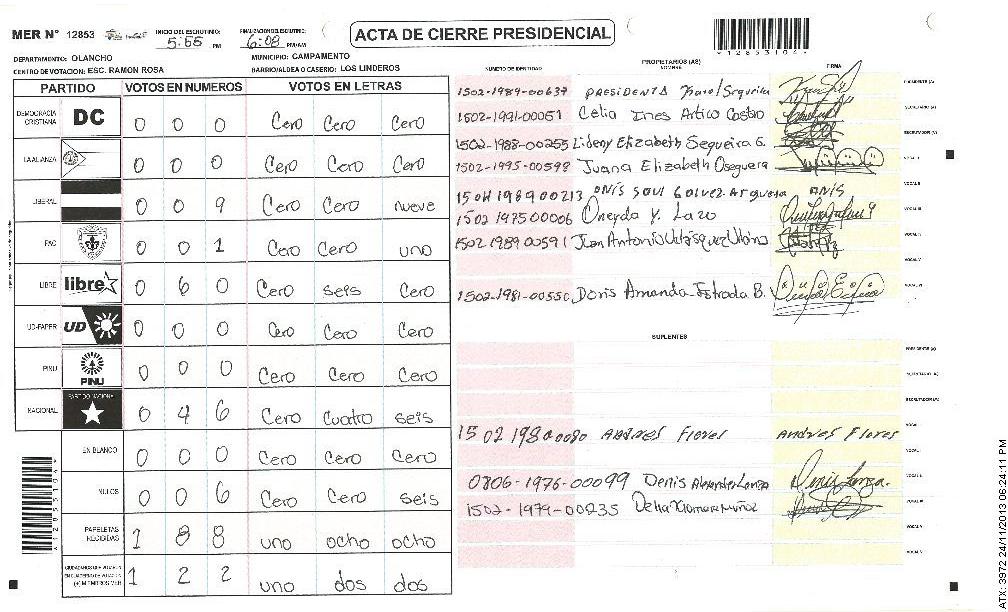 MER N° 12853
INICIO DEL ESCRUTINIO: 5:55 PM
FINALIZACION DEL ESCRUTINIO: 6:08 PM/AM
ACTA DE CIERRE PRESIDENCIAL
12853104
DEPARTAMENTO: OLANCHO
MUNICIPIO: CAMPAMENTO
CENTRO DE VOTACION: ESC. RAMON ROSA
BARRIO/ALDEA O CASERIO: LOS LINDEROS
PARTIDO VOTOS EN NUMEROS VOTOS EN LETRAS
DEMOCRACIA CRISTIANA DC 0 0 0 Cero Cero Cero
LA ALIANZA 0 0 0 Cero Cero Cero
LIBERAL 0 0 9 Cero Cero nueve
PAC 0 0 1 Cero Cero uno
LIBRE libre 0 6 0 Cero seis Cero
UD-FAPER UD 0 0 0 Cero Cero Cero
PINU PINU 0 0 0 Cero Cero Cero
NACIONAL PARTIDO NACIONAL 0 4 6 Cero cuatro seis
EN BLANCO 0 0 0 Cero Cero Cero
NULOS 0 0 6 Cero Cero seis
PAPELETAS RECIBIDAS 1 8 8 uno ocho ocho
CIUDADANOS QUE VOTARON EN CUADERNO DE VOTACION (+) MIEMBROS MER 1 2 2 uno dos dos
NUMERO DE IDENTIDAD
PROPIETARIOS (AS)
NOMBRE
FIRMA
1502-1989-00637 PRESIDENTA Karol Segueira
PRESIDENTE (A)
1502-1991-00051 Celia Ines Artica Castro
SECRETARIO (A)
1502-1988-00255 Lideny Elizabeth Segueira G.
ESCRUTADOR (A)
1502-1995-00598 Juana Elizabeth Oseguera
VOCAL I
1504 1989 00213 ONIS SAUL GALVEZ Argueta ONIS
VOCAL II
1502 1975 00006 Oneyda Y. Lazo
VOCAL III
1502 1989 00591 Juan Antonio Velásquez
VOCAL IV
VOCAL V
1502-1981-00550 Doris Amanda Estrada B.
VOCAL VI
SUPLENTES
PRESIDENTE (A)
SECRETARIO (A)
ESCRUTADOR (A)
15 02 1980 0080 ANDRES Flores Andres Flores
VOCAL I
VOCAL II
0806-1976-00099 Denis Alexander Lanza
1502-1979-00235 Delia Xiomara Muñoz
VOCAL V
ATX: 3972 24/11/2013 06:24:11 PM